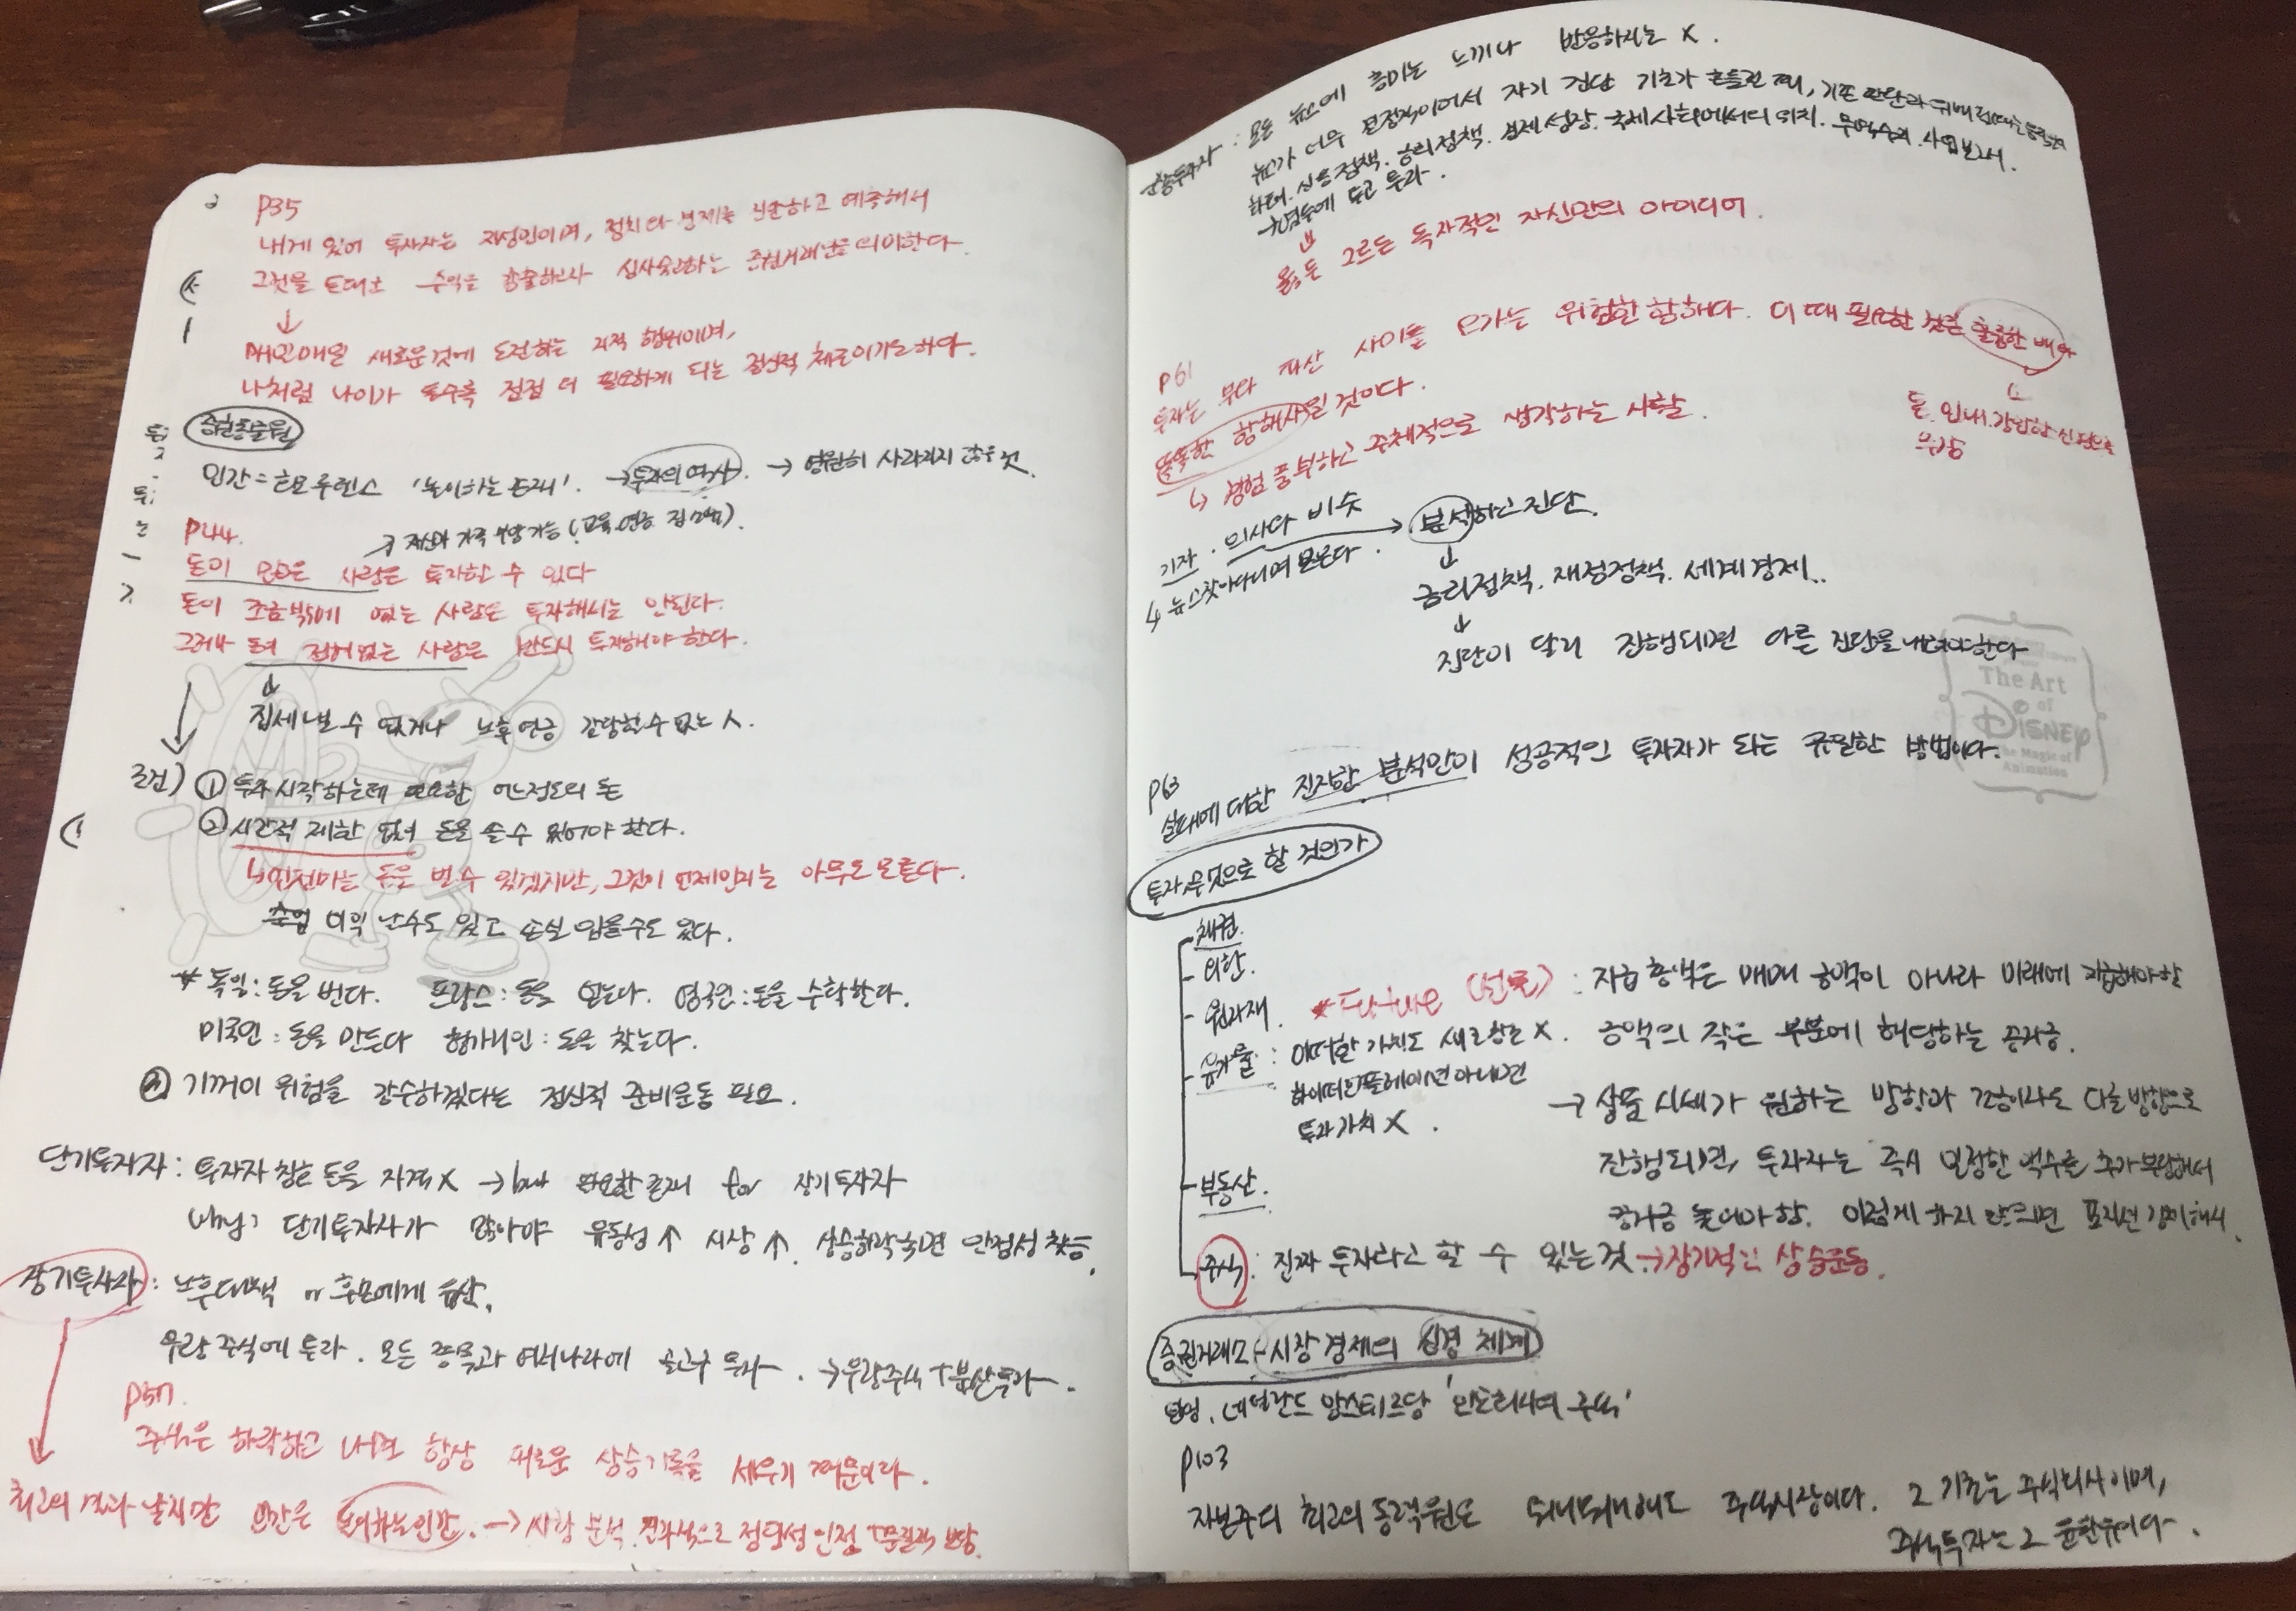 P35
내게 있어 투자자는 지성인이며, 정치와 경제를 진단하고 예측해서
그것을 토대로 수익을 창출하고자 심사숙고하는 증권거래인을 의미한다.
↓
매일매일 새로운것에 도전하는 지적 행위이며,
나처럼 나이가 들수록 점점 더 필요하게 되는 정신적 체조이기도 하다.
증권동물원
인간 = 호모루덴스 '놀이하는 존재'. → 투자의 역사 → 영원히 사라지지 않을 것
P44.
→ 자신과 가족 부양 가능 (교육, 연금, 집
돈이 많은 사람은 투자할 수 있다
돈이 조금밖에 없는 사람은 투자해서는 안된다.
그러나 돈이 전혀없는 사람은 반드시 투자해야 한다.
↓
집세 낼 수 없거나 노후연금 감당할수 없는 人.
조건) ① 투자 시작하는데 필요한 어느정도의 돈
② 시간적 제한 없이 돈을 쓸 수 있어야 한다.
↳ 언젠가는 돈을 벌 수 있겠지만, 그것이 언제인지는 아무도 모른다.
이익 날수도 있고 손실 입을수도 있다.
* 독일 : 돈을 번다. 프랑스 : 돈을 얻는다. 영국인 : 돈을 수확한다.
미국인 : 돈을 만든다 헝가리인 : 돈을 찾는다.
③ 기꺼이 위험을 감수하겠다는 정신적 준비운동 필요.
단기투자자 : 투자자 칭호 들을 자격 X → but 필요한 존재 for 장기투자자
why? 단기투자자가 많아야 유동성 ↑ 시장 ↑. 상승하락하면 안정성 찾음.
장기투자자 : 노후대책 or 후손에게 유산.
우량 주식에 투자. 모든 종목과 여러나라에 골고루 투자. → 우량주식 + 분산투자.
P57.
주식은 하락하고 나면 항상 새로운 상승기록을 세우기 때문이다.
최고의 결과 낳지만 인간은 놀이하는인간. → 시황 분석. 결과적으로 정당성 인정 + 물질적 보상.
순종투자자 : 모든 뉴스에 흥미는 느끼나 반응하지는 X.
뉴스가 너무 결정적이어서 자기 진단 기초가 흔들릴 때, 기존 판단과
화폐. 신용정책. 금리정책. 경제성장. 국제사회에서의 위치. 무역수지. 사업보고서.
염두에 두고 투자.
↓
옳든 그르든 독자적인 자신만의 아이디어.
P61
투자는 부와 파산 사이를 오가는 위험한 항해다. 이 때 필요한 것은 훌륭한 배와
똑똑한 항해사일 것이다.
돈, 인내, 강인한 신경으로
무장
↳ 경험 풍부하고 주체적으로 생각하는 사람.
기자. 의사와 비슷 → 분석하고 진단.
↳ 뉴스 찾아다니며 모은다.
↓
금리정책. 재정정책. 세계경제..
↓
진단이 달리 진행되면 다른 진단을 내려야한다
The Art
of
DISNEY
The Magic of
Animation
P63
실패에 대한 진지한 분석만이 성공적인 투자자가 되는 유일한 방법이다.
투자 무엇으로 할 것인가
채권.
외환.
원자재. * Future (선물) : 지급 총액은 매매 총액이 아니라 미래에 지급해야할
금액의 작은 부분에 해당하는 공과금.
유가물 : 어떠한 가치도 새로 창출 X.
하이퍼인플레이션 아니면
투자가치 X.
→ 상품 시세가 원하는 방향과 조금이라도 다른 방향으로
진행되면, 투자자는 즉시 일정한 액수를 추가 부담해서
공과금 높여야 함. 이렇게 하지 않으면 포지션 강제해지.
부동산.
주식 : 진짜 투자라고 할 수 있는 것 → 장기적인 상승운동.
증권거래소 - 시장 경제의 신경 체계
탄생. 네덜란드 암스테르담 '인도회사의 주식'
P103
자본주의 최고의 동력원은 뭐니뭐니해도 주식시장이다. 그 기초는 주식회사이며,
주식투자는 그 윤활유이다.